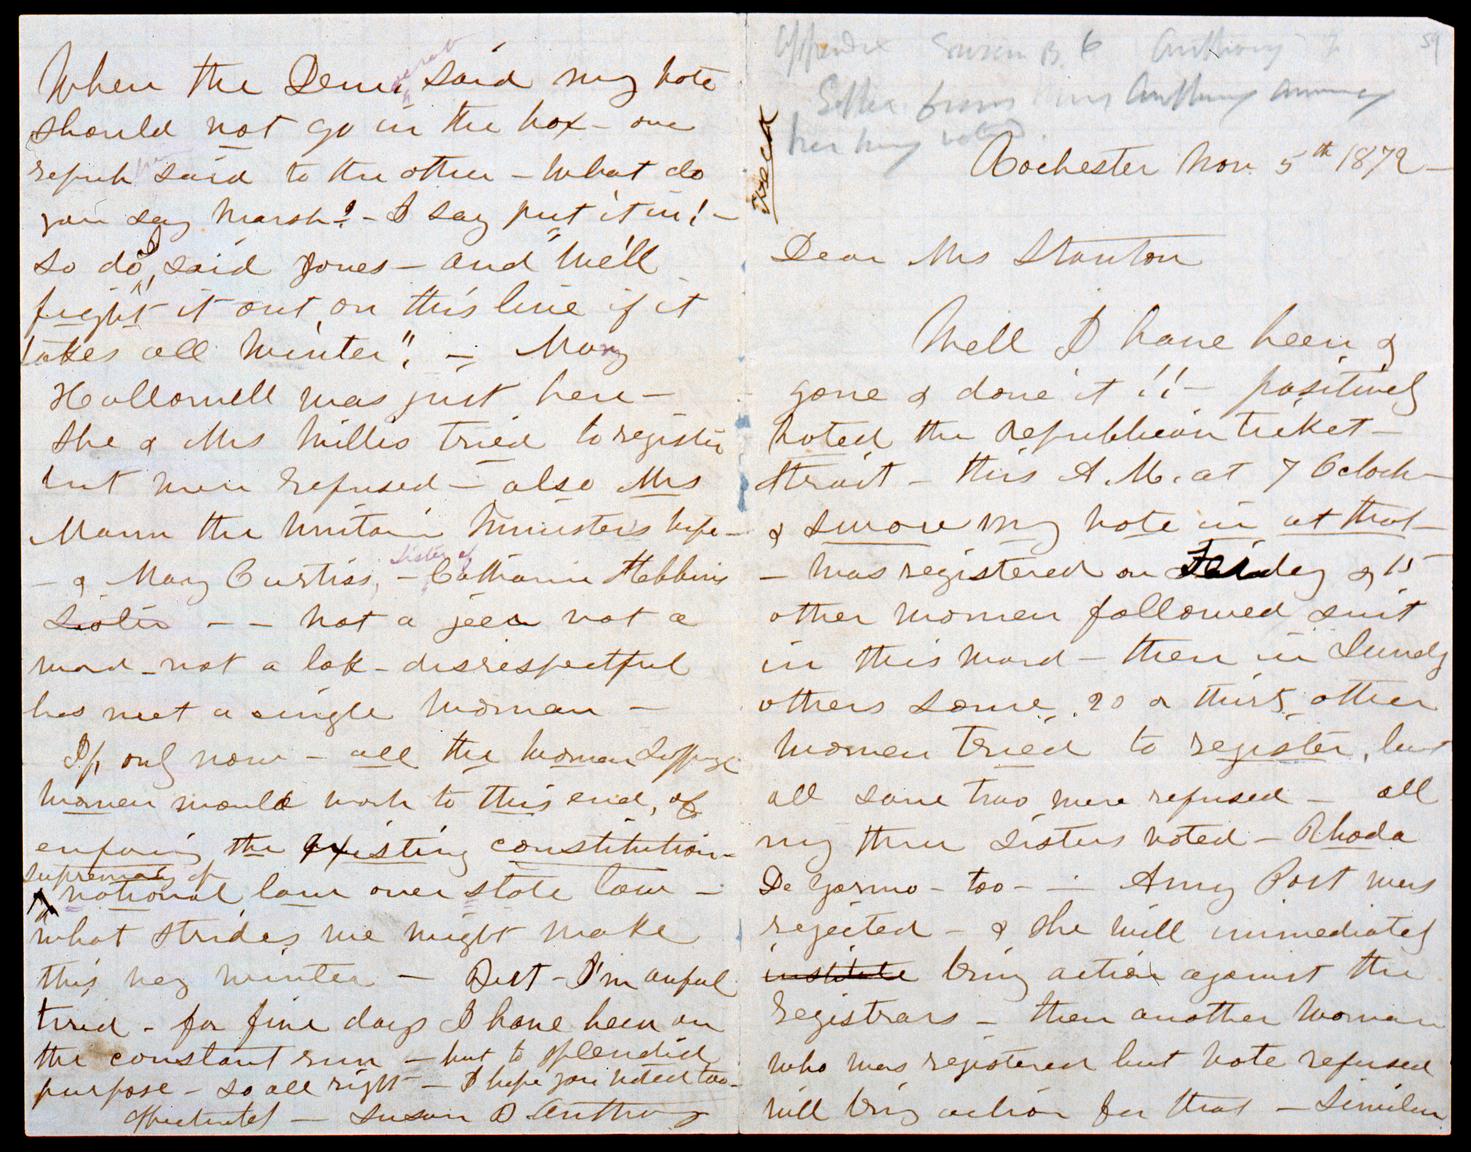 Susan B. Anthony
59
Letter from Miss Anthony announcing
her having voted.
Rochester Nov. 5th 1872 —
Dear Mrs Stanton
Well I have been &
gone & done it!! — positively
voted the republican ticket —
strait — this A.M. at 7 Oclock —
& swore my vote in at that —
— was registered on Friday & 15
other women followed suit
in this ward — then in Sundy
others some 20 or thirty other
women tried to register, but
all save two were refused — all
my three sisters voted — Rhoda
De Garmo — too — — Amy Post was
rejected — & she will immediately
institute bring action against the
registrars — then another woman
who was registered but vote refused
will bring action for that — Similar
When the Dem said my vote
should not go in the box — one
repub said to the other — What do
you say Marsh? — I say put it in! —
So do I, said Jones — and "we'll
fight it out on this line if it
takes all winter", — Mary
Hallowell was just here —
She & Mrs Willis tried to register
but were refused — also Mrs
Mann the Unitarian Minister's wife —
sister of
— & Mary Curtiss, — Catharine Stebbins
Sister — — not a jeer not a
word — not a look — disrespectful
has met a single woman —
If only now — all the woman suffrage
women would work to this end, of
enforcing the existing constitution —
supremacy of
national law over state law —
what strides we might make
this very winter — But — I'm awful
tired — for five days I have been on
the constant run — but to splendid
purpose — so all right — I hope you voted too —
Affectionately — Susan B Anthony